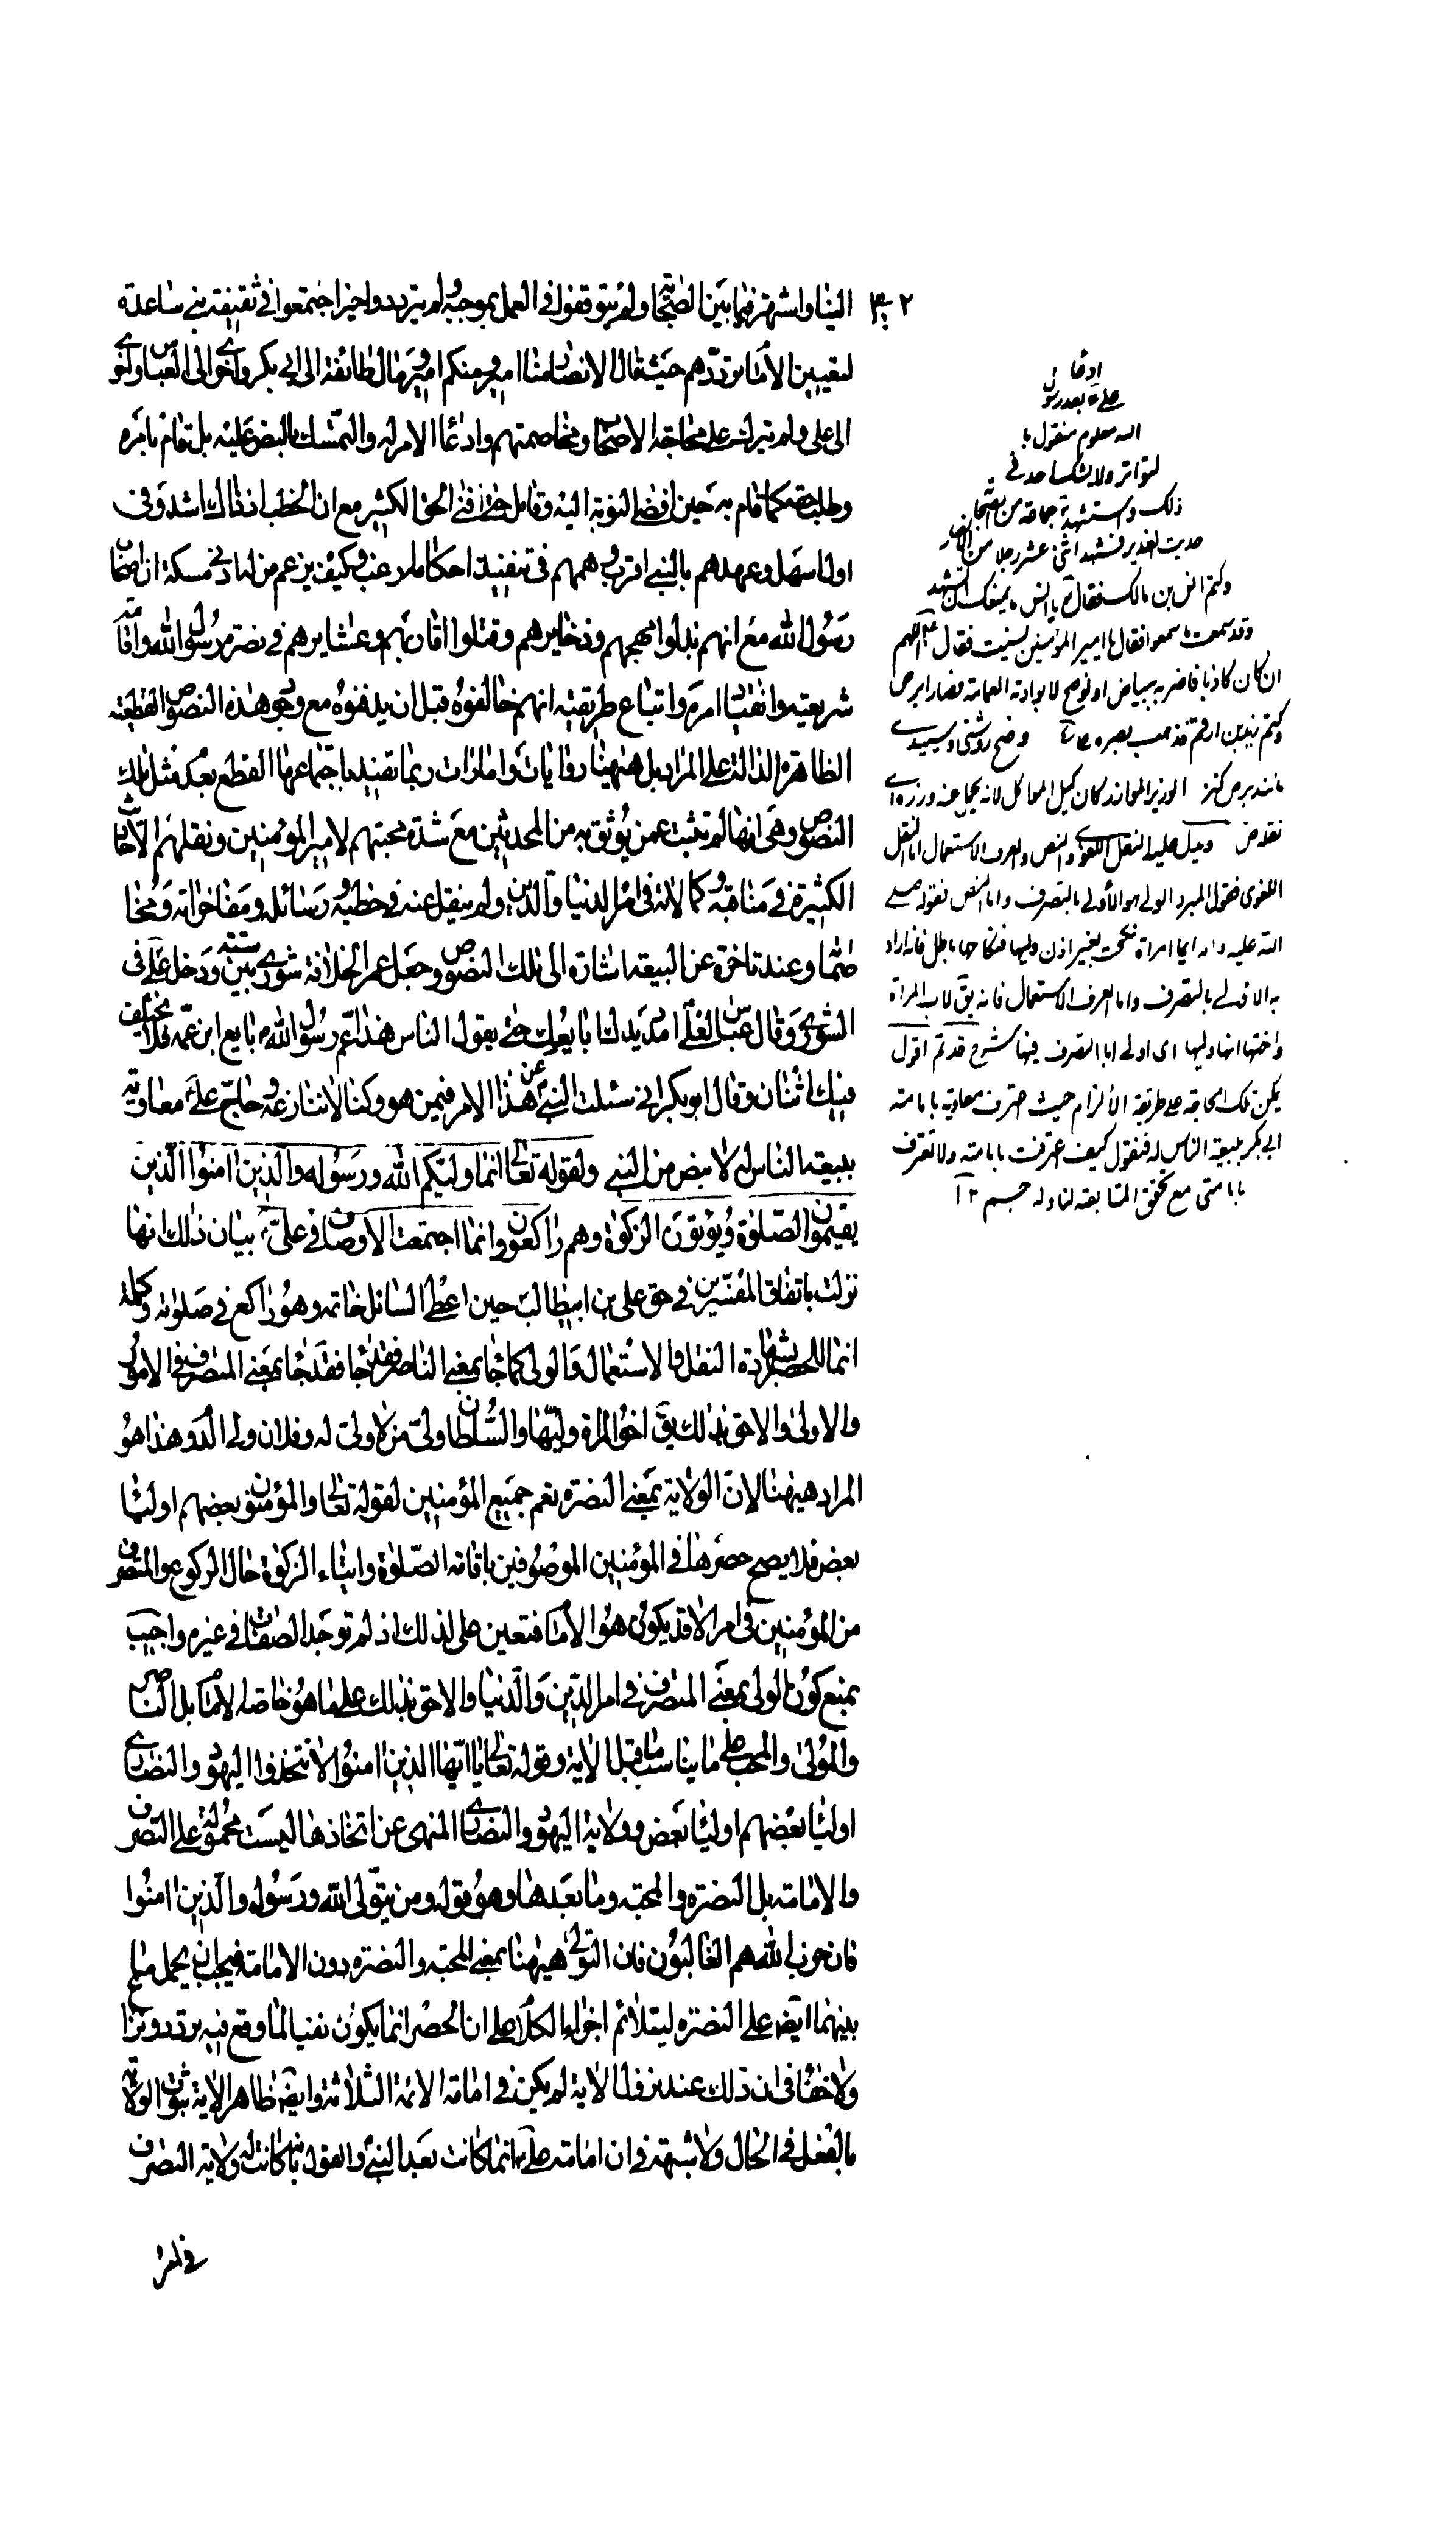 ٤٠٢
الينا واشتهر فيما بين الصحابة ولم يتوقفوا في العمل بموجبه ولم يترددوا حين اجتمعوا في ثقيفة بني ساعدة
لتعيين الامام ترددهم حيث قال الانصار منا امير ومنكم امير ومال طائفة الى ابي بكر واخرى الى العباس واخرى
الى علي ولم يترك علي محاجة الاصحاب ومخاصمتهم وادعاء الامر له والتمسك بالنص عليه بل قام بامره
وطلب حقه كما قام به حين افضى النوبة اليه وقاتل حتى افنى الخلق الكثير مع ان الخطب اذ ذاك اشد وفي
اول الامر اسهل وعهدهم بالنبي اقرب وهممهم في تنفيذ احكامه ارغب وكيف يزعم من له ادنى مسكة ان اصحاب
رسول الله مع انهم بذلوا مهجهم وذخايرهم وقتلوا اقاربهم وعشايرهم في نصرة رسول الله واقامة
شريعته وانقياد امره واتباع طريقته انهم خالفوه قبل ان يدفنوه مع وجود هذه النصوص القطعية
الظاهرة الدالة على المراد بل ههنا روايات وامارات ربما تفيد باجتماعها القطع بعدم مثل تلك
النصوص وهي انها لم تثبت عمن يوثق به من المحدثين مع شدة محبتهم لامير المؤمنين ونقلهم الاحاديث
الكثيرة في مناقبه وكمالاته في امر الدنيا والدين ولم ينقل عنه في خطبه ورسائله ومفاخراته ومخا
صماته وعند تاخره عن البيعة اشارة الى تلك النصوص وجعل عمر الخلافة شورى بين ستة ودخل علي في
الشورى وقال عباس لعلي امدد يدك ابايعك حتى يقول الناس هذا عم رسول الله بايع ابن عمه فلا يختلف
فيك اثنان وقال ابو بكر اني سئلت النبي عن هذا الامر فيمن هو وكنا لا ننازعه وحاج علي معاوية
ببيعة الناس له لا بنص من النبي ولقوله تعالى انما وليكم الله ورسوله والذين امنوا الذين
يقيمون الصلوة ويؤتون الزكوة وهم راكعون وانما اجتمعت الاوصاف في علي بيان ذلك انها
نزلت باتفاق المفسرين في حق علي بن ابيطالب حين اعطى السائل خاتمه وهو راكع في صلوته وكلمة
انما للحصر بشهادة النقل والاستعمال والولي كما جاء بمعنى الناصر فقد جاء بمعنى المتصرف في الامور
والاولى والاحق بذلك يق اخو المراة وليها والسلطان ولي من لا ولي له وفلان ولي الدم وهذا هو
المراد ههنا لان الولاية بمعنى النصرة تعم جميع المؤمنين لقوله تعالى والمؤمنون بعضهم اولياء
بعض فلا يصح حصرها في المؤمنين الموصوفين باقامة الصلوة وايتاء الزكوة حال الركوع والمتصرف
من المؤمنين في امر الامة يكون هو الامام فتعين علي لذلك اذ لم توجد الصفات في غيره واجيب
بمنع كون الولي بمعنى المتصرف في امر الدين والدنيا والاحق بذلك على ما هو خاصة الامام بل الناصر
والمولى والمحب على ما يناسب ما قبل الاية وقوله تعالى يا ايها الذين امنوا لا تتخذوا اليهود والنصارى
اولياء بعضهم اولياء بعض وولاية اليهود والنصارى المنهى عن اتخاذها ليست محمولة على التصرف
والامامة بل النصرة والمحبة وما بعدها وهو قوله ومن يتولى الله ورسوله والذين امنوا
فان حزب الله هم الغالبون فان التولي ههنا بمعنى المحبة والنصرة دون الامامة فيجب ان يحمل ما
بينهما ايضا على النصرة ليتلائم اجزاء الكلام على ان الحصر انما يكون نفيا لما وقع فيه تردد ونزاع
ولا خفاء في ان ذلك عند نزول الاية لم يكن في امامة الائمة الثلاثة وايضا ظاهر الاية ثبوت الولاية
بالفعل في الحال ولا شبهة في ان امامة علي انما كانت بعد النبي والقول بانه كانت له ولاية التصرف
في امر
علي بعد رسول
الله معلوم منقول با
لتواتر ولا يشك احد في
ذلك واستشهد جماعة من الصحابة
حديث الغدير فشهد اثنى عشر رجلا من الانصار
وكتم انس بن مالك فقال يا انس ما يمنعك ان تشهد
وقد سمعت ما سمعوا فقال يا امير المؤمنين نسيت فقال اللهم
ان كان كاذبا فاضربه ببياض او بوضح لا يواريه العمامة فصار ابرص
وكتم زيد بن ارقم فذهب بصره وضح روشنى وسپيدى
مانند برص كنز
وليها فنكاحها باطل فانه اراد
به الاولى بالتصرف واما العرف الاستعمال فانه يق لاب المراة
واختها انها وليها اى اولى بالتصرف فيها شرح قديم اقول
يكن تلك المحاجة على طريقة الالزام حيث اعترف معاوية بامامة
ابي بكر ببيعة الناس له فنقول كيف اعترفت بامامته ولا تعترف
بامامتي مع تحقق المتابعة لنا وله